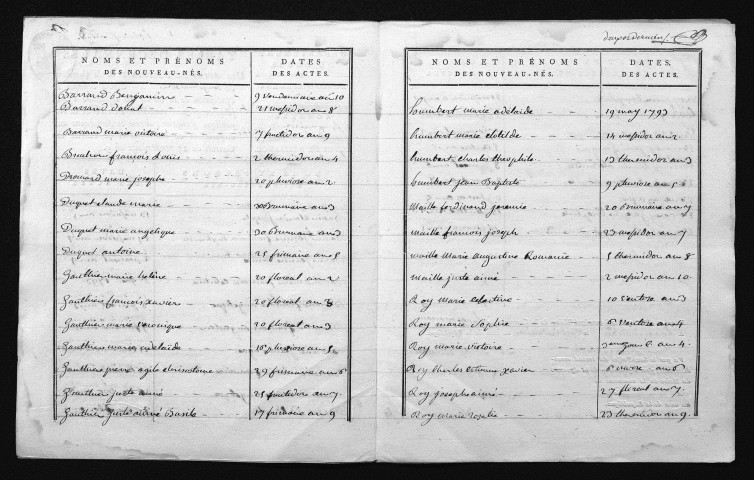 NOMS ET PRÉNOMS
DES NOUVEAU-NÉS.
DATES
DES ACTES.
Barraud Benjamin 9 vendemiaire an 10
Barraud donat 21 messidor an 8
Barraud marie victoire 7 fructidor an 9
françois Louis 2 thermidor an 4
Drouard marie josephe 20 pluviose an 2
Duquet claude marie brumaire an 3
Duquet marie angelique 30 brumaire an 3
Duquet antoine 25 frimaire an 5
Gauthier marie helene 20 floreal an 2
Gauthier francois xavier 20 floreal an 3
Gauthier marie veronique 20 floreal an 3
Gauthier marie adelaide 16 pluviose an 5
Gauthier pierre agile chrisostome 29 frimaire an 6
Gauthier juste aimé 25 fructidor an 7
Gauthier juste aimé Basile 17 frimaire an 9
NOMS ET PRÉNOMS
DES NOUVEAU-NÉS.
DATES.
DES ACTES.
humbert marie adelaide 19 may 1793
humbert marie clotilde 14 messidor an 2
humbert charles theophile 13 thermidor an 3
humbert jean Baptiste 9 pluviose an 5
Maille ferdinand jeremie 20 brumaire an 7
Maille francois joseph 23 messidor an 7
maille Marie augustine Romaine 5 thermidor an 8
maille juste aimé 2 messidor an 10
Roy marie 10 ventose an 3
Roy marie Sophie 6 ventose an 4
Roy marie victoire an 4
Roy Charles etienne xavier 6 nivose an 6
Roy joseph aimé 27 floreal an 7
Roy marie rosalie 23 thermidor an 9